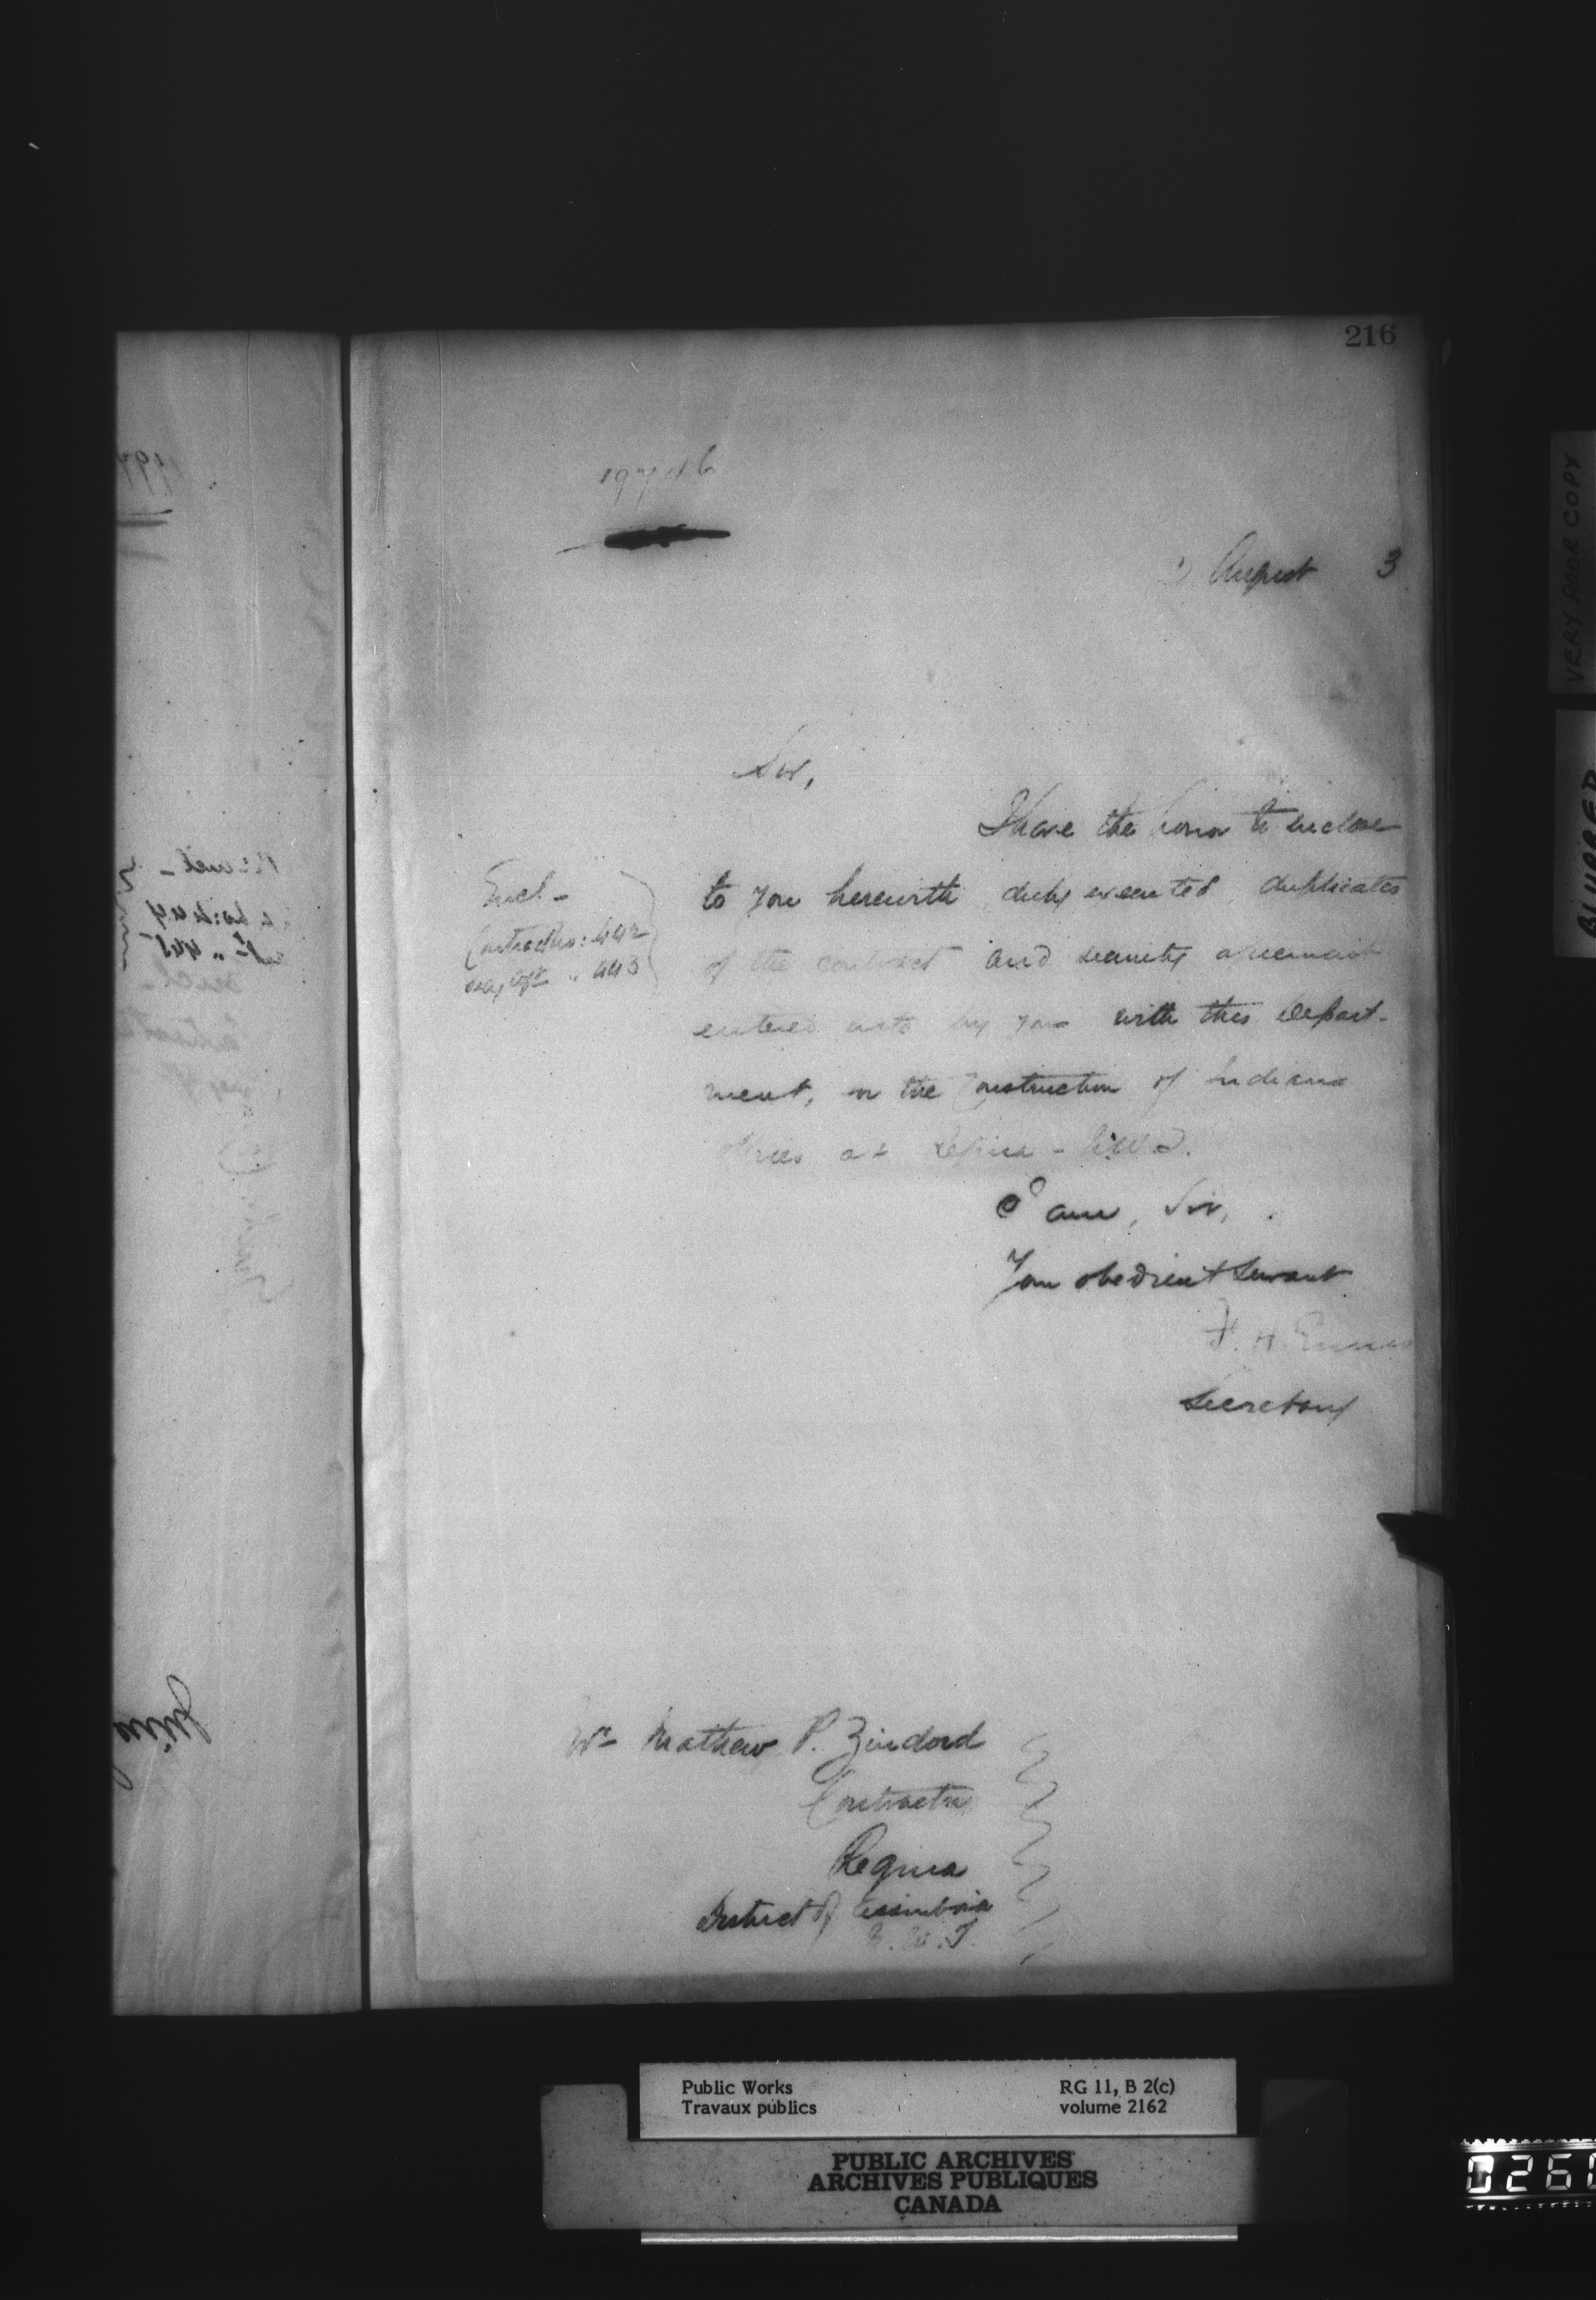 216
19746
2 August 3
Sir,
I have the honor to inclose
to you herewith duly executed, duplicates
of the contract and security agreement
entered into by you with this Depart-
ment, for the Construction of Indian
Offices at Regina - N.W.T.
Encl -
Contract No: 442
443
I am, Sir,
Your obedient Servant
F. H. Ennis
Secretary
Mr Mathew P.
Contractor
Regina
District of Assiniboia
N.W.T.
VERY POOR COPY
BLURRED
Public Works
Travaux publics
RG 11, B 2(c)
volume 2162
PUBLIC ARCHIVES
ARCHIVES PUBLIQUES
CANADA
026